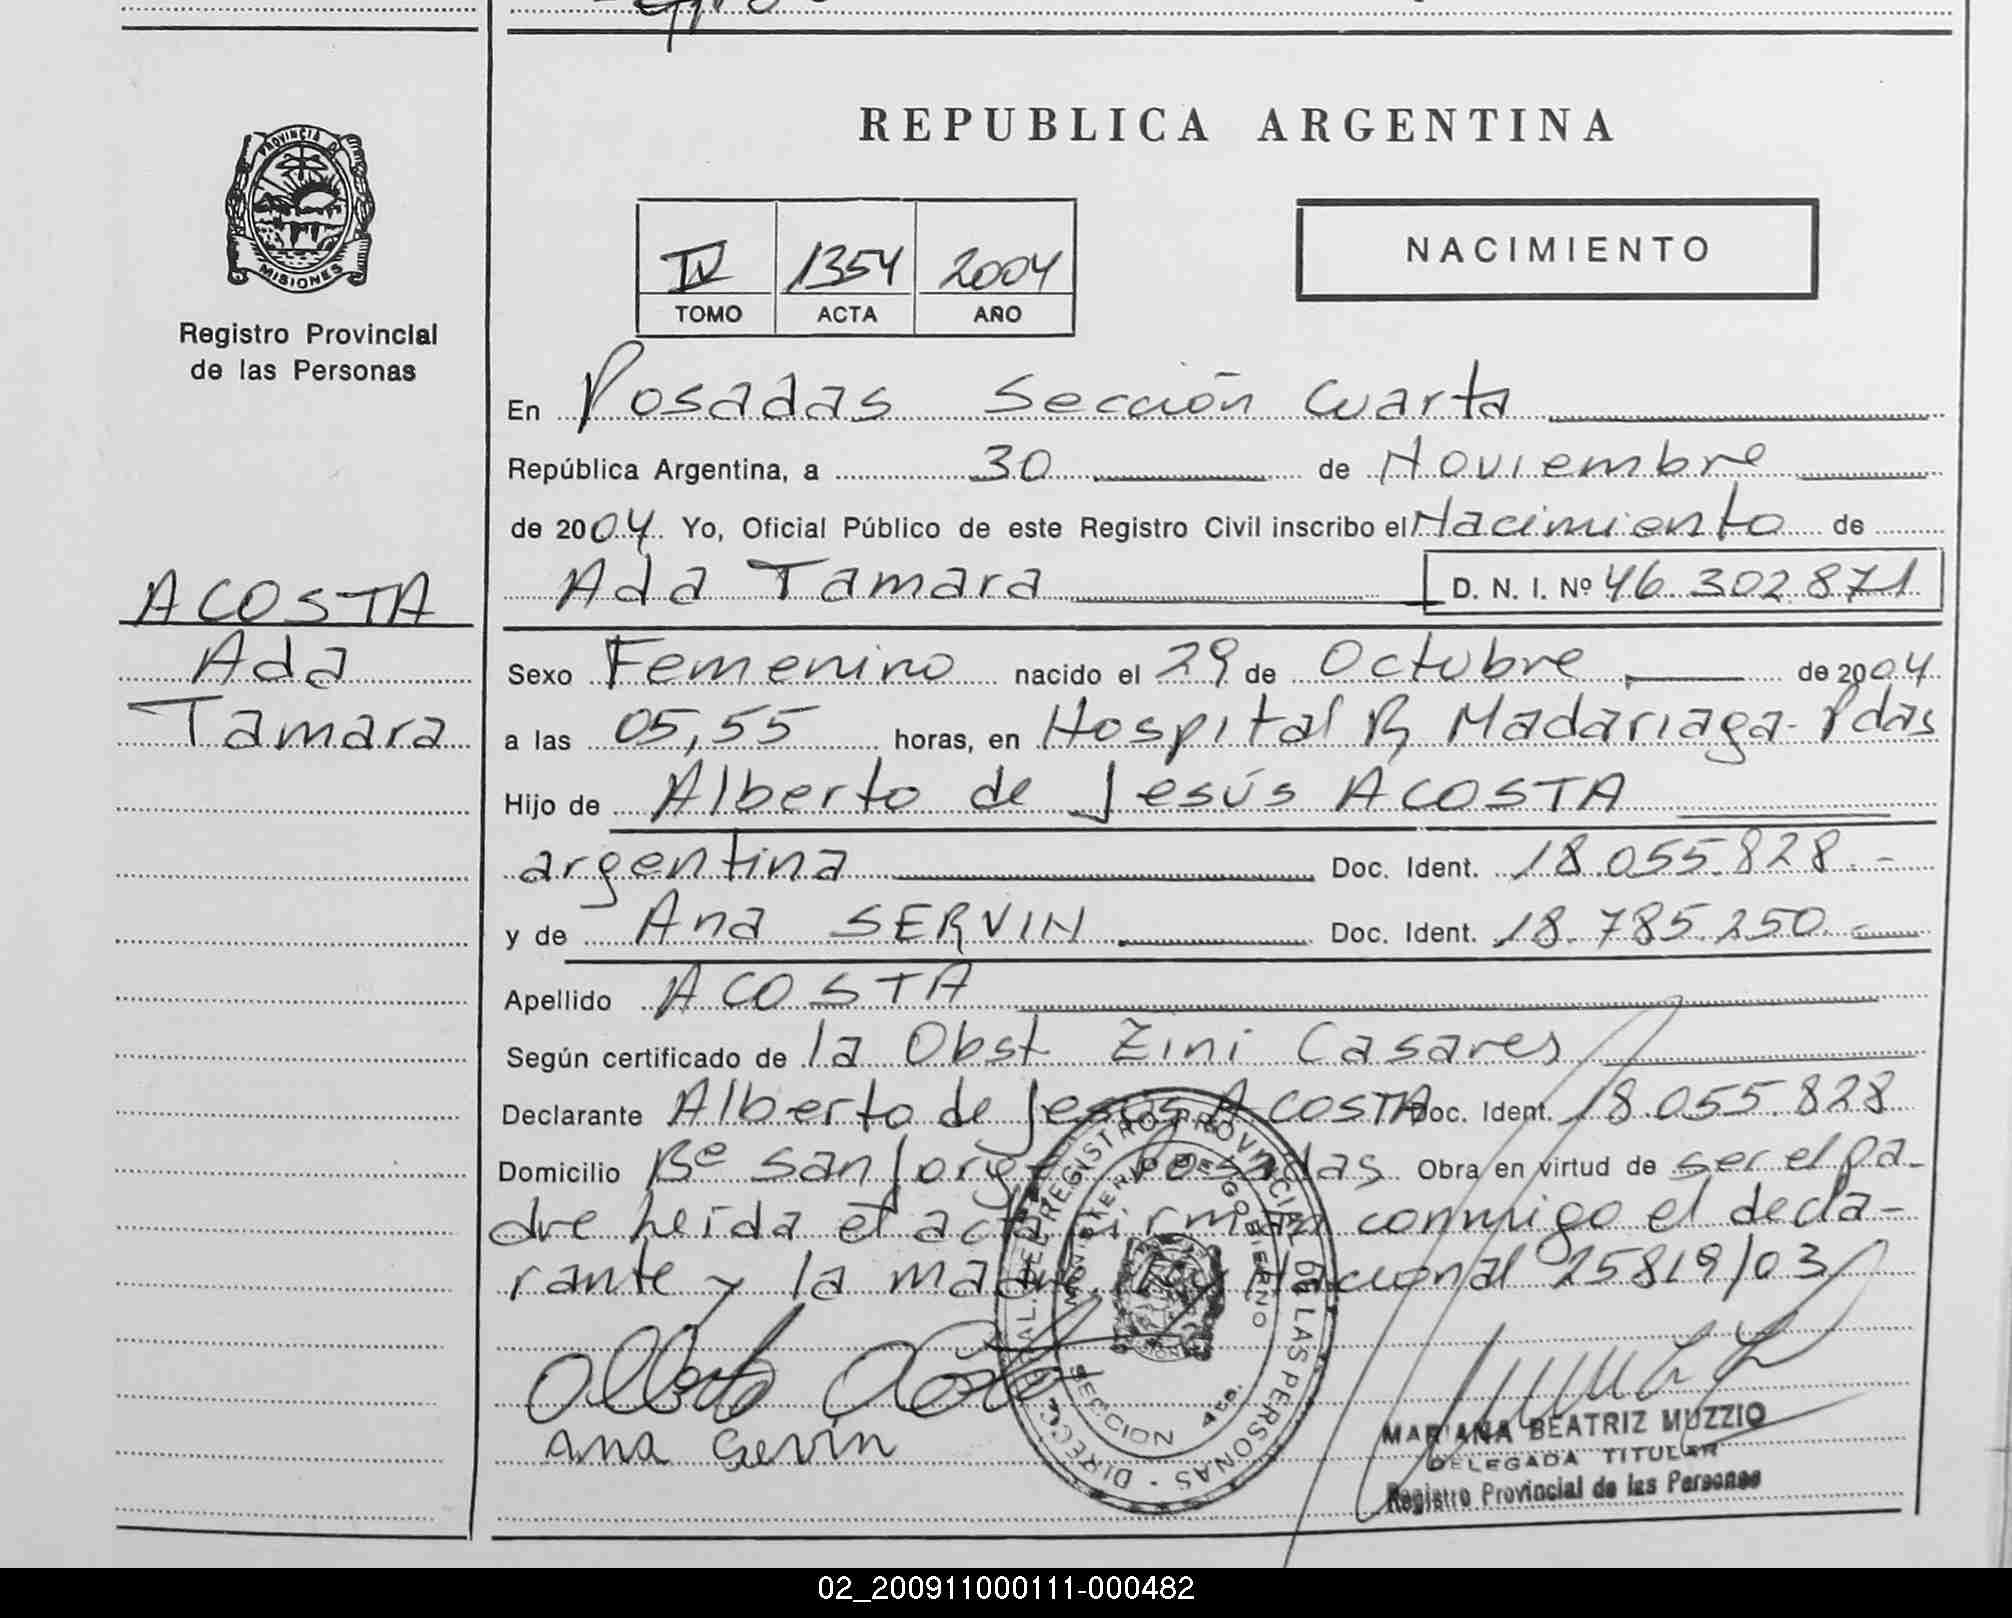 REPUBLICA ARGENTINA
PROVINCIA D
MISIONES
Registro Provincial
de las Personas
IV 1354 2004
TOMO ACTA AÑO
NACIMIENTO
En Posadas Sección Cuarta
República Argentina, a 30 de Noviembre
de 2004. Yo, Oficial Público de este Registro Civil inscribo el Nacimiento de
Ada Tamara D. N. I. Nº 46.302.871
ACOSTA
Ada
Tamara
Sexo Femenino nacido el 29 de Octubre de 2004
a las 05,55 horas, en Hospital R. Madariaga-Pdas
Hijo de Alberto de Jesús ACOSTA
argentina Doc. Ident. 18.055.828.-
y de Ana SERVIN Doc. Ident. 18.785.250.-
Apellido ACOSTA
Según certificado de la Obst Zini Casares
Declarante Alberto de Jesús ACOSTA Doc. Ident. 18.055.828
Domicilio Bº San Jorge Posadas Obra en virtud de ser el pa-
dre Leída el acta firman conmigo el decla-
rante y la madre. Ley Nacional 25819/03
Alberto Acosta
Ana Servin
DIRECC GRAL. DEL REGISTRO PROVINCIAL DE LAS PERSONAS
MINISTERIO DE GOBIERNO
SECCION 4ta.
MARIANA BEATRIZ MUZZIO
DELEGADA TITULAR
Registro Provincial de las Personas
02_200911000111-000482